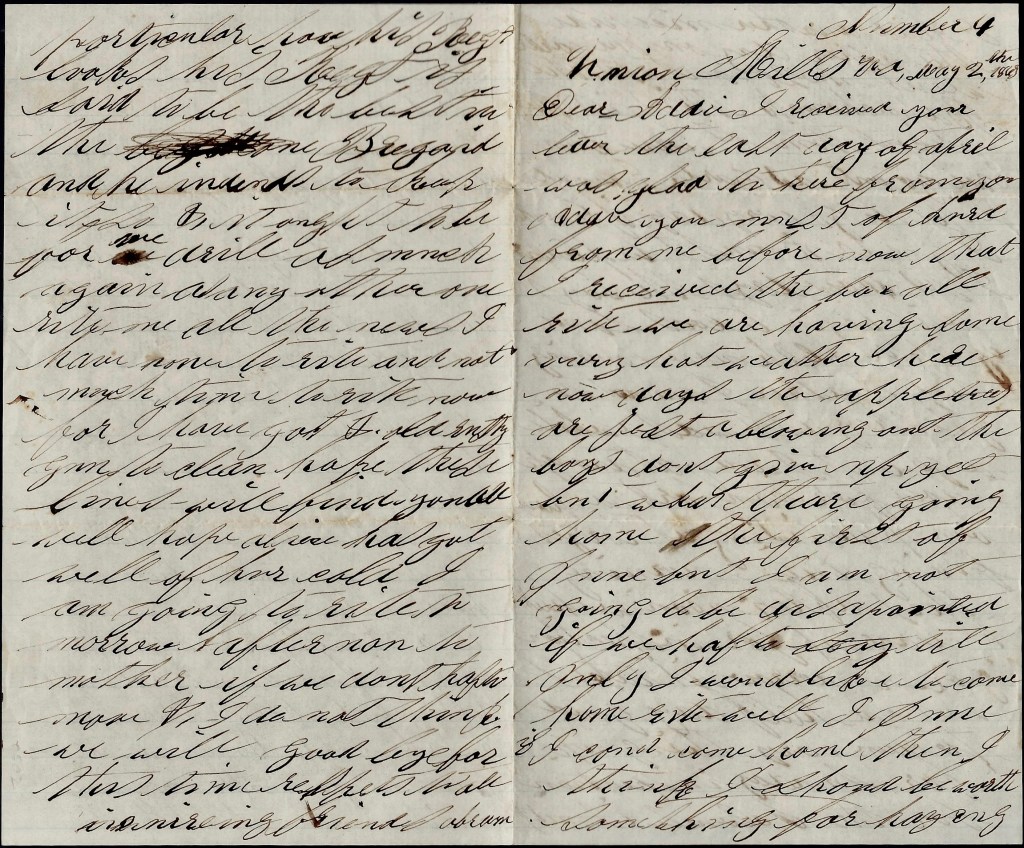 Number 4
Union Mills Va, May 2, the 1863
Dear Addie I received your
letter the last day of april
was glad to here from you
Addie you must of hurd
from me before now that
I received the box all
rite we are having some
varry hot weather here
now days the apple trees
are Just a blowing out the
boys dont give up yet
but what thare going
home the first of
June but I am not
going to be disapointed
if we hafto stay till
July I would like to come
home rite well I June
if I coud come home then I
think I shoud be worth
something for haying
porticular how his Regt
looks his Regt is
said to be the best in
the one Bregaid
and he indends to keep
it so & it ought to be
for we drill as much
again as any other one
rite me all the news I
have none to rite and not
much time to rite now
for I have got & old rusty
gun to clean hope these
lines will find you all
well hope alice has got
well of hur cold I
am going to rite to
morrow afternon to
mother if we dont hafto
move & I do not think
we will good bye for
this time respects to all
inquireing friends abram